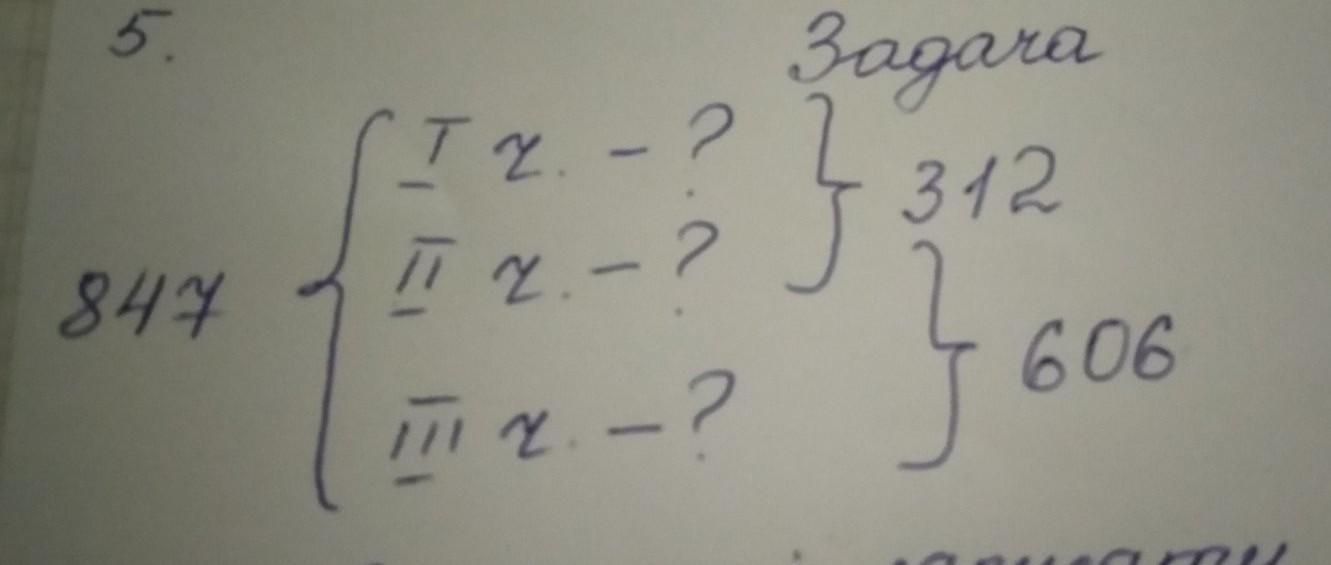 5. Задача
I ч. - ? } 312
847 { II ч. - ?
} 606
III ч. - ?